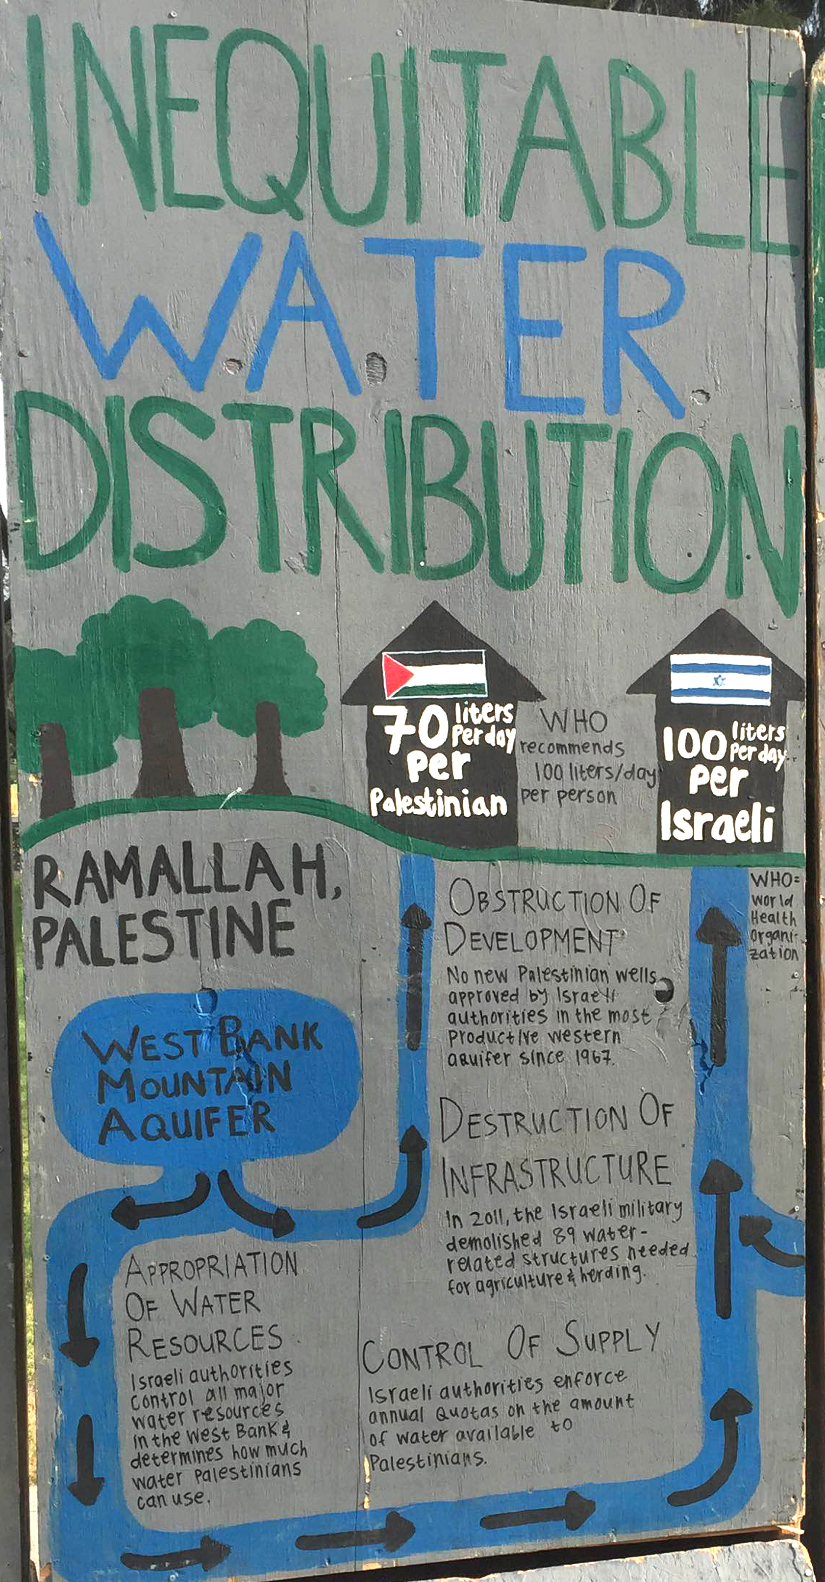 INEQUITABLE
WATER
DISTRIBUTION
70 liters
per day
per
Palestinian
WHO
recommends
100 liters/day
per person
100 liters
per day
per
Israeli
RAMALLAH,
PALESTINE
WHO=
World
Health
Organi-
zation
WEST BANK
MOUNTAIN
AQUIFER
OBSTRUCTION OF
DEVELOPMENT
No new Palestinian wells
approved by Israeli
authorities in the most
productive western
aquifer since 1967.
DESTRUCTION OF
INFRASTRUCTURE
In 2011, the Israeli military
demolished 89 water-
related structures needed
for agriculture & herding.
APPROPRIATION
OF WATER
RESOURCES
Israeli authorities
control all major
water resources
in the West Bank &
determines how much
water Palestinians
can use.
CONTROL OF SUPPLY
Israeli authorities enforce
annual quotas on the amount
of water available to
Palestinians.